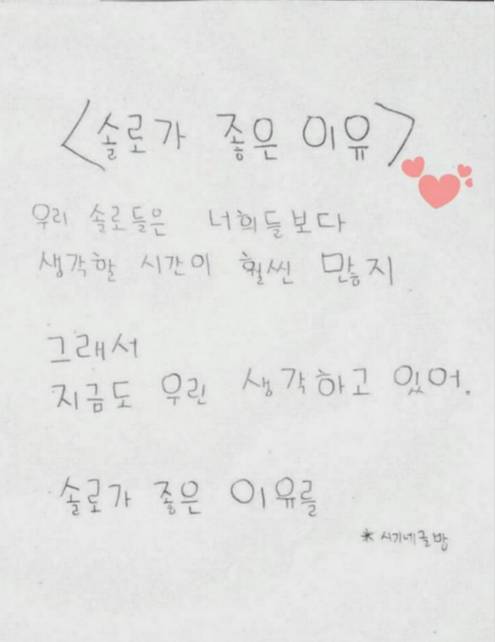 <솔로가 좋은 이유>
우리 솔로들은 너희들보다
생각할 시간이 훨씬 많지
그래서
지금도 우린 생각하고 있어.
솔로가 좋은 이유를
*시기네글방